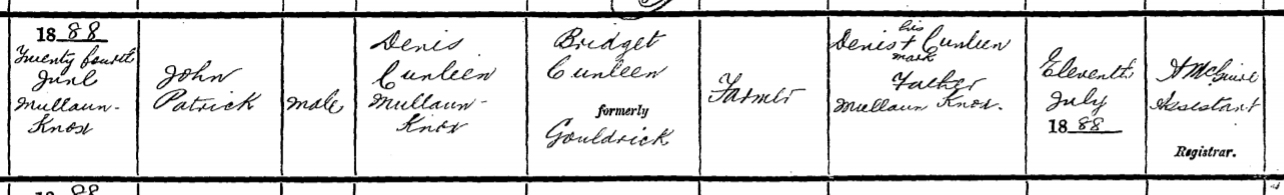 1888
Twenty fourth
June
Mullaun-
Knox
John
Patrick
male
Denis
Cunleen
Mullaun-
Knox
Bridget
Cunleen
formerly
Gouldrick
Farmer
his
Denis + Cunleen
mark
Father
Mullaun Knox.
Eleventh
July
1888
A McGuire
Assistant
Registrar.